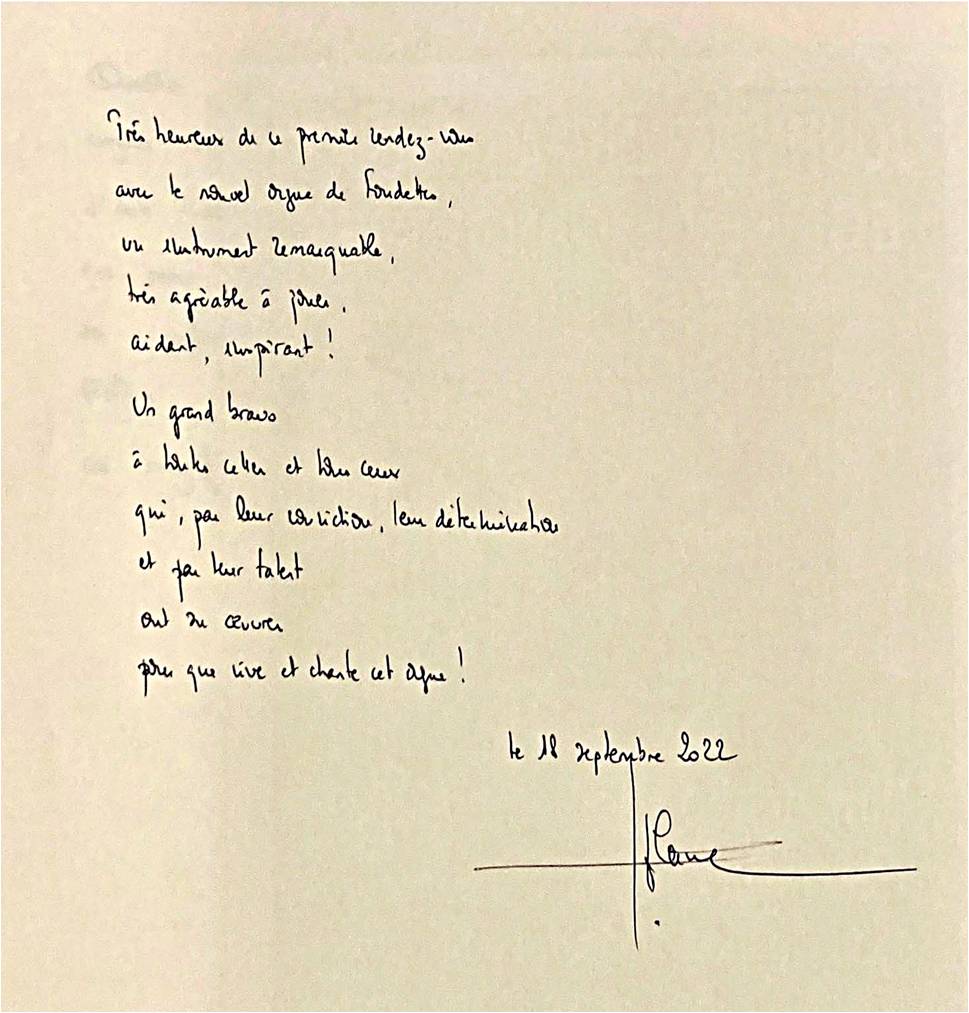 Très heureux de ce premier rendez-vous
avec le nouvel orgue de Fondettes,
un instrument remarquable,
très agréable à jouer,
aidant, inspirant !
Un grand bravo
à toutes celles et tous ceux
qui, par leur conviction, leur détermination
et par leur talent
ont su œuvrer
pour que vive et chante cet orgue !
le 18 septembre 2022